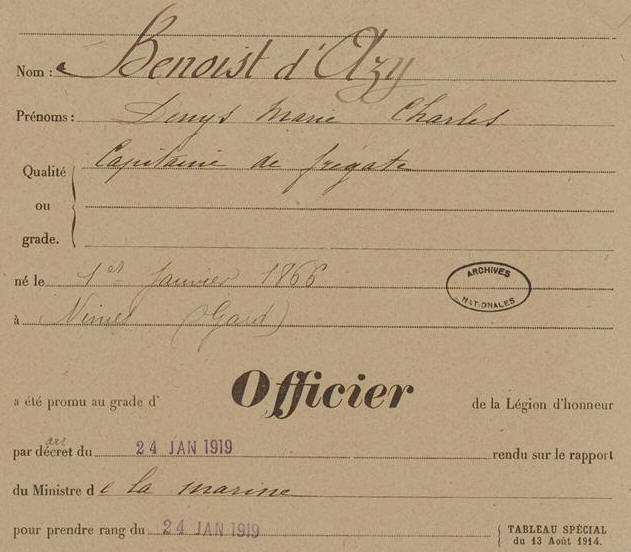 Nom : Benoist d'Azy
Prénoms : Denys Marie Charles
Qualité ou grade. Capitaine de frégate
né le 1er Janvier 1866
ARCHIVES NATIONALES
à Nimes (Gard)
a été promu au grade d' Officier de la Légion d'honneur
par décret du 24 JAN 1919 rendu sur le rapport
du Ministre de la marine
pour prendre rang du 24 JAN 1919
TABLEAU SPÉCIAL
du 13 Août 1914.